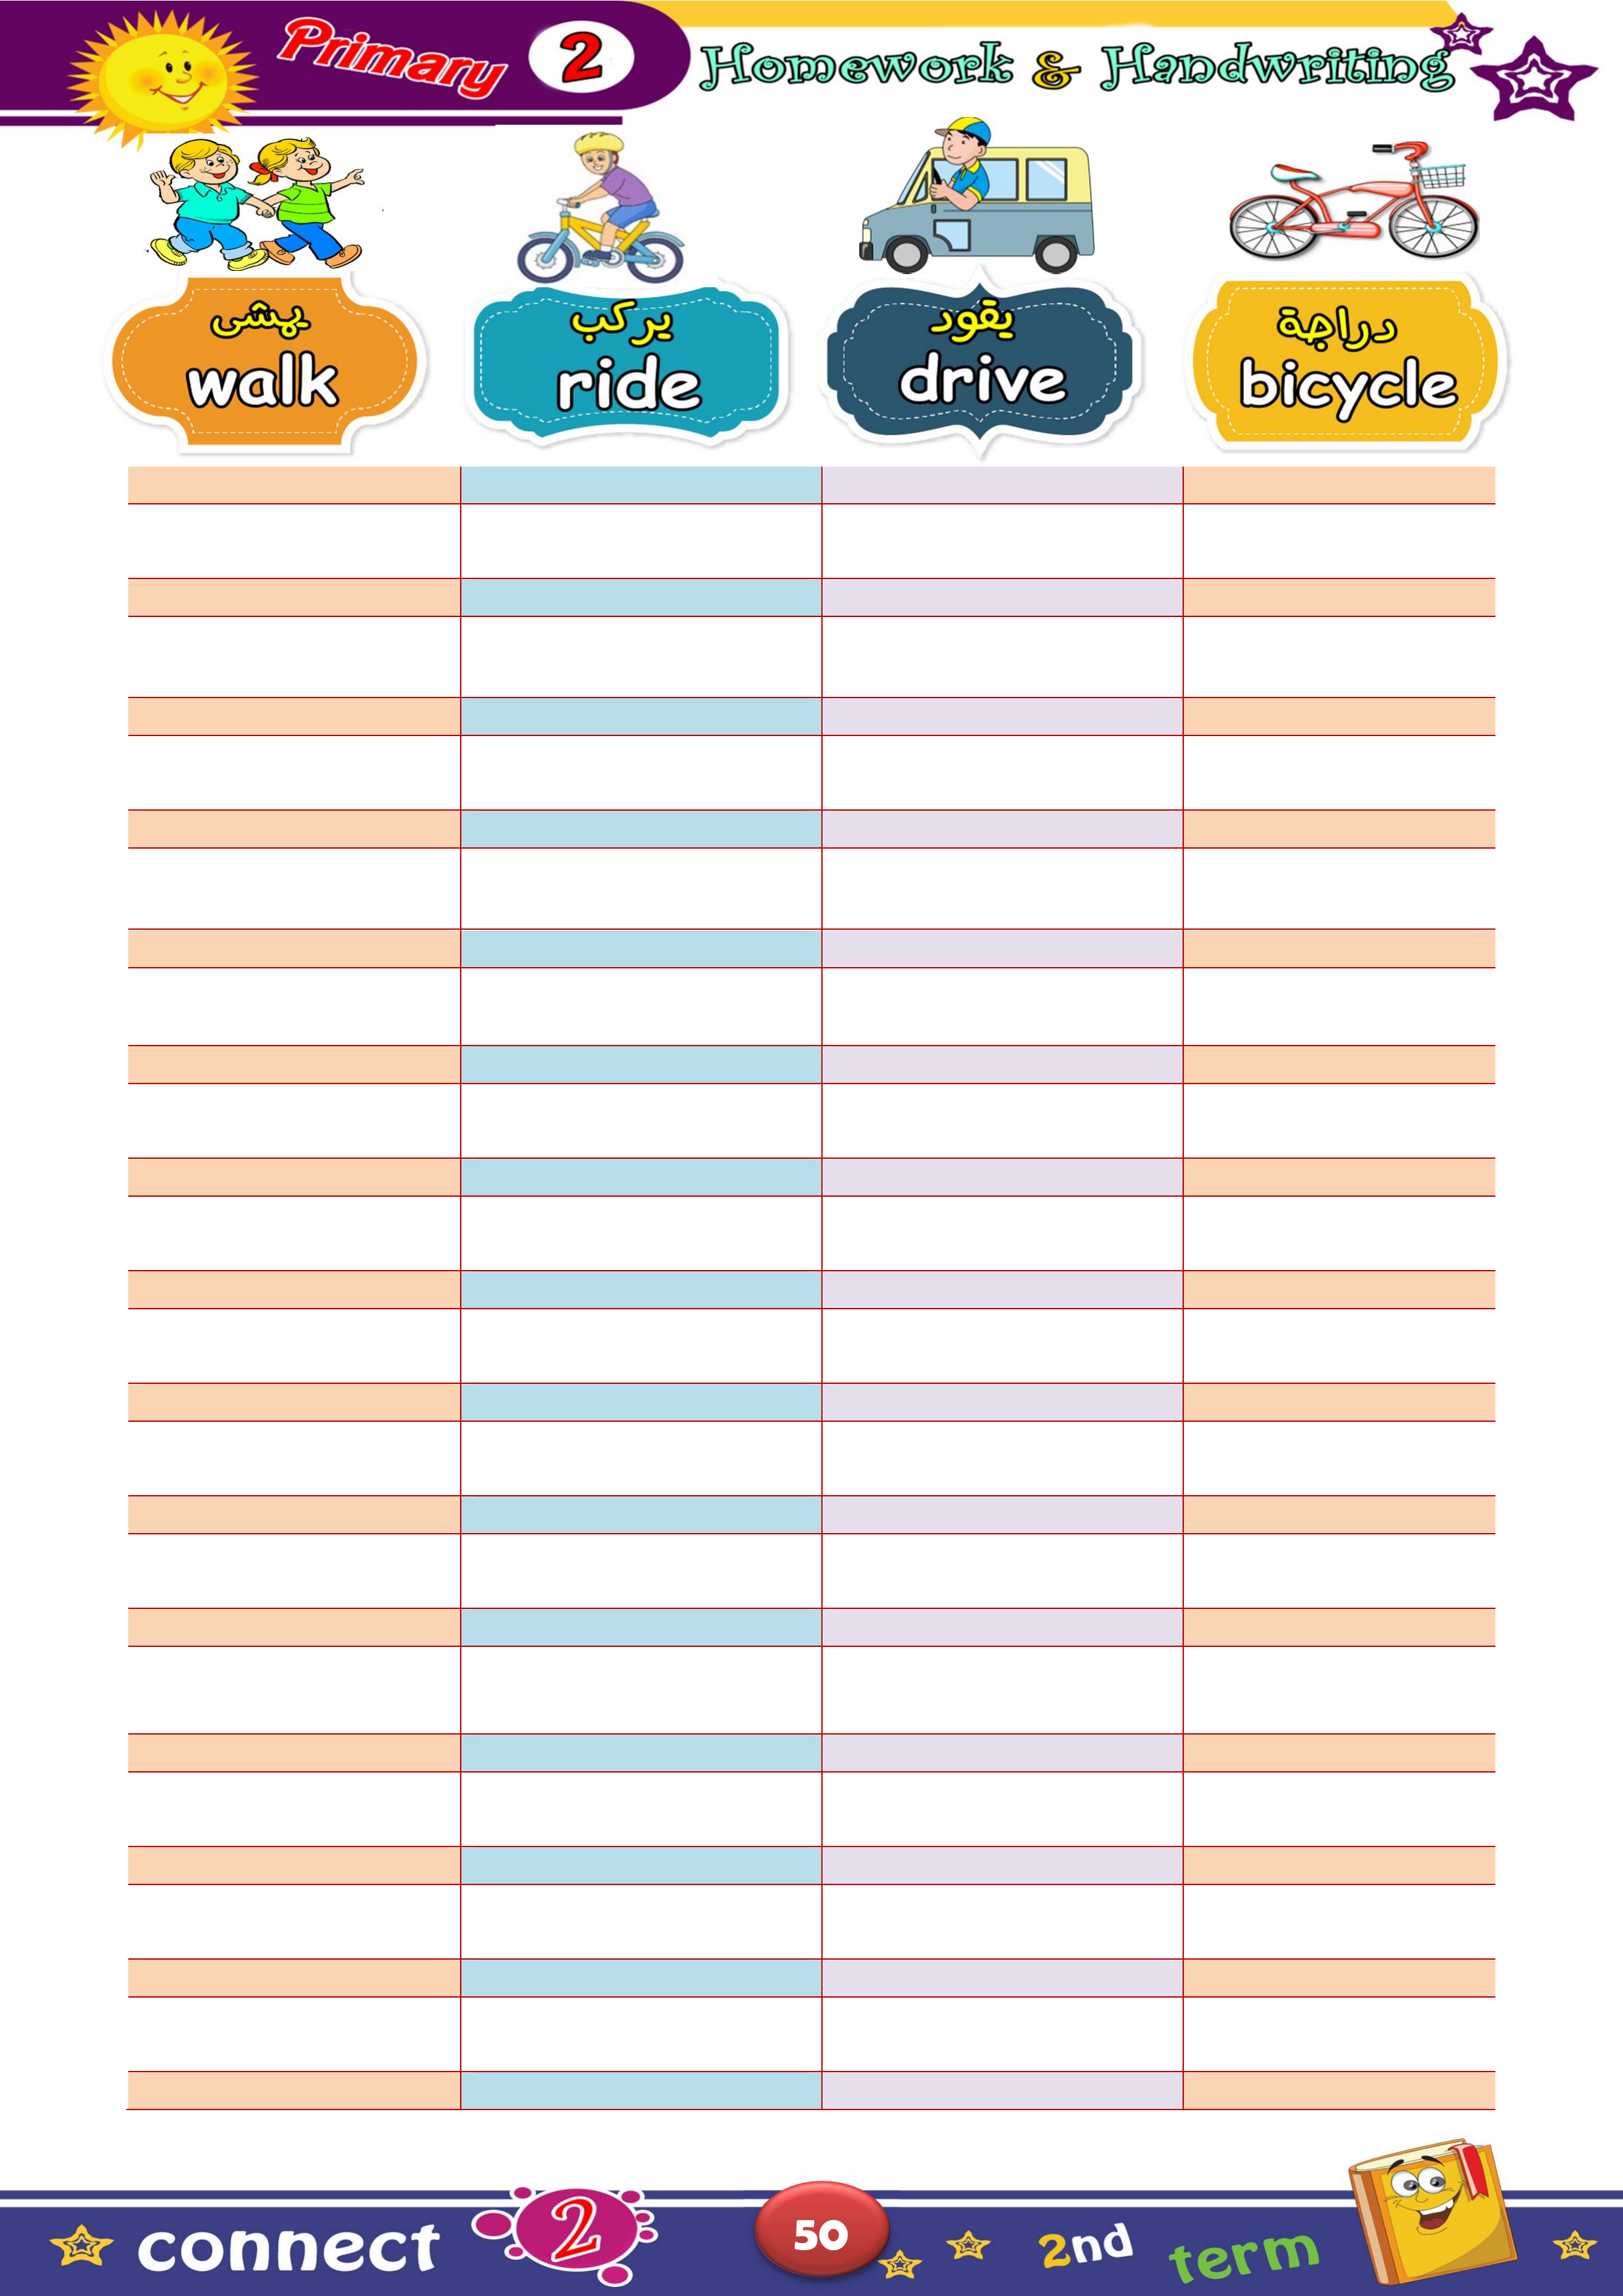 Primary 2 Homework & Handwriting
يمشى
walk
يركب
ride
يقود
drive
دراجة
bicycle
connect 2 50 2nd term